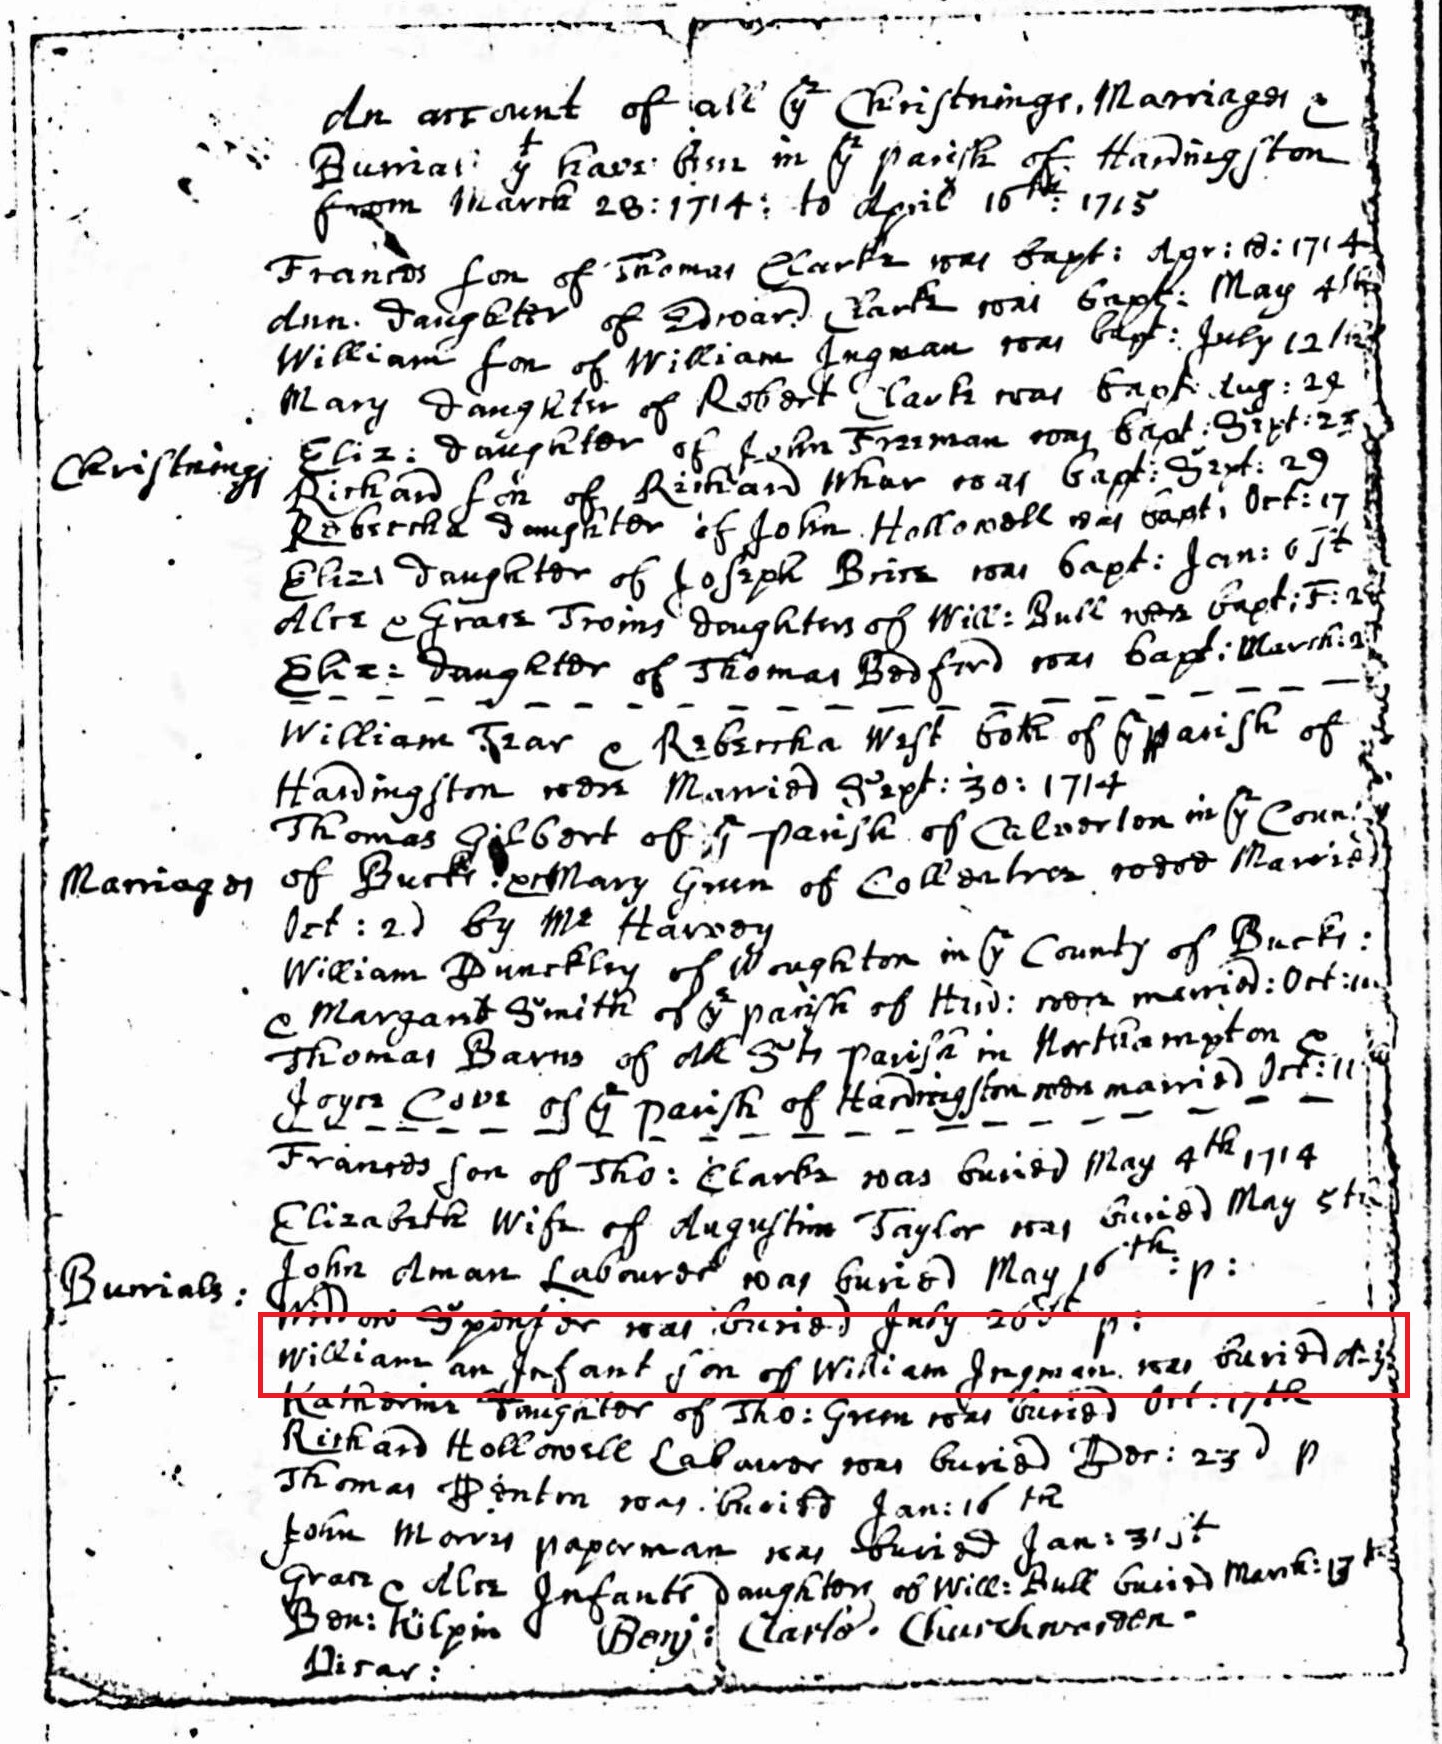 An account of all yͤ Christnings, Marriages &
Burrias yͭ have been in yͤ parish of Hardingston
from March 28: 1714: to April 16th: 1715
Frances son of Thomas Clarke was bapt: Apr: 18: 1714
Ann. daughter of Edward Clarke was bapt: May 4th
William son of William Ingman was bapt: July 12
Mary daughter of Robert Clarke was bapt: Aug: 29
Christnings
Eliz: daughter of John Freeman was bapt: Sept: 23
Richard son of Richard was bapt: Sept: 29
Rebeccha daughter of John Hollowell was bapt: Oct: 17
Eliz: daughter of Joseph Brice was bapt: Jan: 6
Alce & Grace Twins daughters of Will: Bull were bapt: F: 2
Eliz: daughter of Thomas Bedford was bapt: March: 2
William & Rebeccha West both of yͤ parish of
Hardingston were Married Sept: 30: 1714
Thomas Gilbert of yͤ parish of Calverton in yͤ Coun
Marriages
of Bucks & Mary Green of Colleatree were Married
Oct: 2d by Mr Harvey
William Dunckley of Woughton in yͤ County of Bucks:
& Margaret Smith of yͤ parish of Hard: were married: Oct:
Thomas Barns of All Sts parish in Northampton &
Joyce Cove of yͤ parish of Hardingston were married Oct: 11
Frances son of Tho: Clarke was buried May 4th 1714
Elizabeth Wife of Augustin Taylor was buried May 5th
Burrials:
John Aman Labourer was buried May 16th: p:
Widdow Spenser was buried July 26th p:
William an Infant son of William Ingman was buried
Katherine daughter of Tho: Green was buried Oct: 17th
Richard Hollowell Labourer was buried Dec: 23d p
Thomas Denton was buried Jan: 16th
John Morris paperman was buried Jan: 31st
Grace & Alce Infants daughters of Will: Bull buried March: 13th
Ben: Kilpin Benj: Clarke. Churchwarden
Vicar: